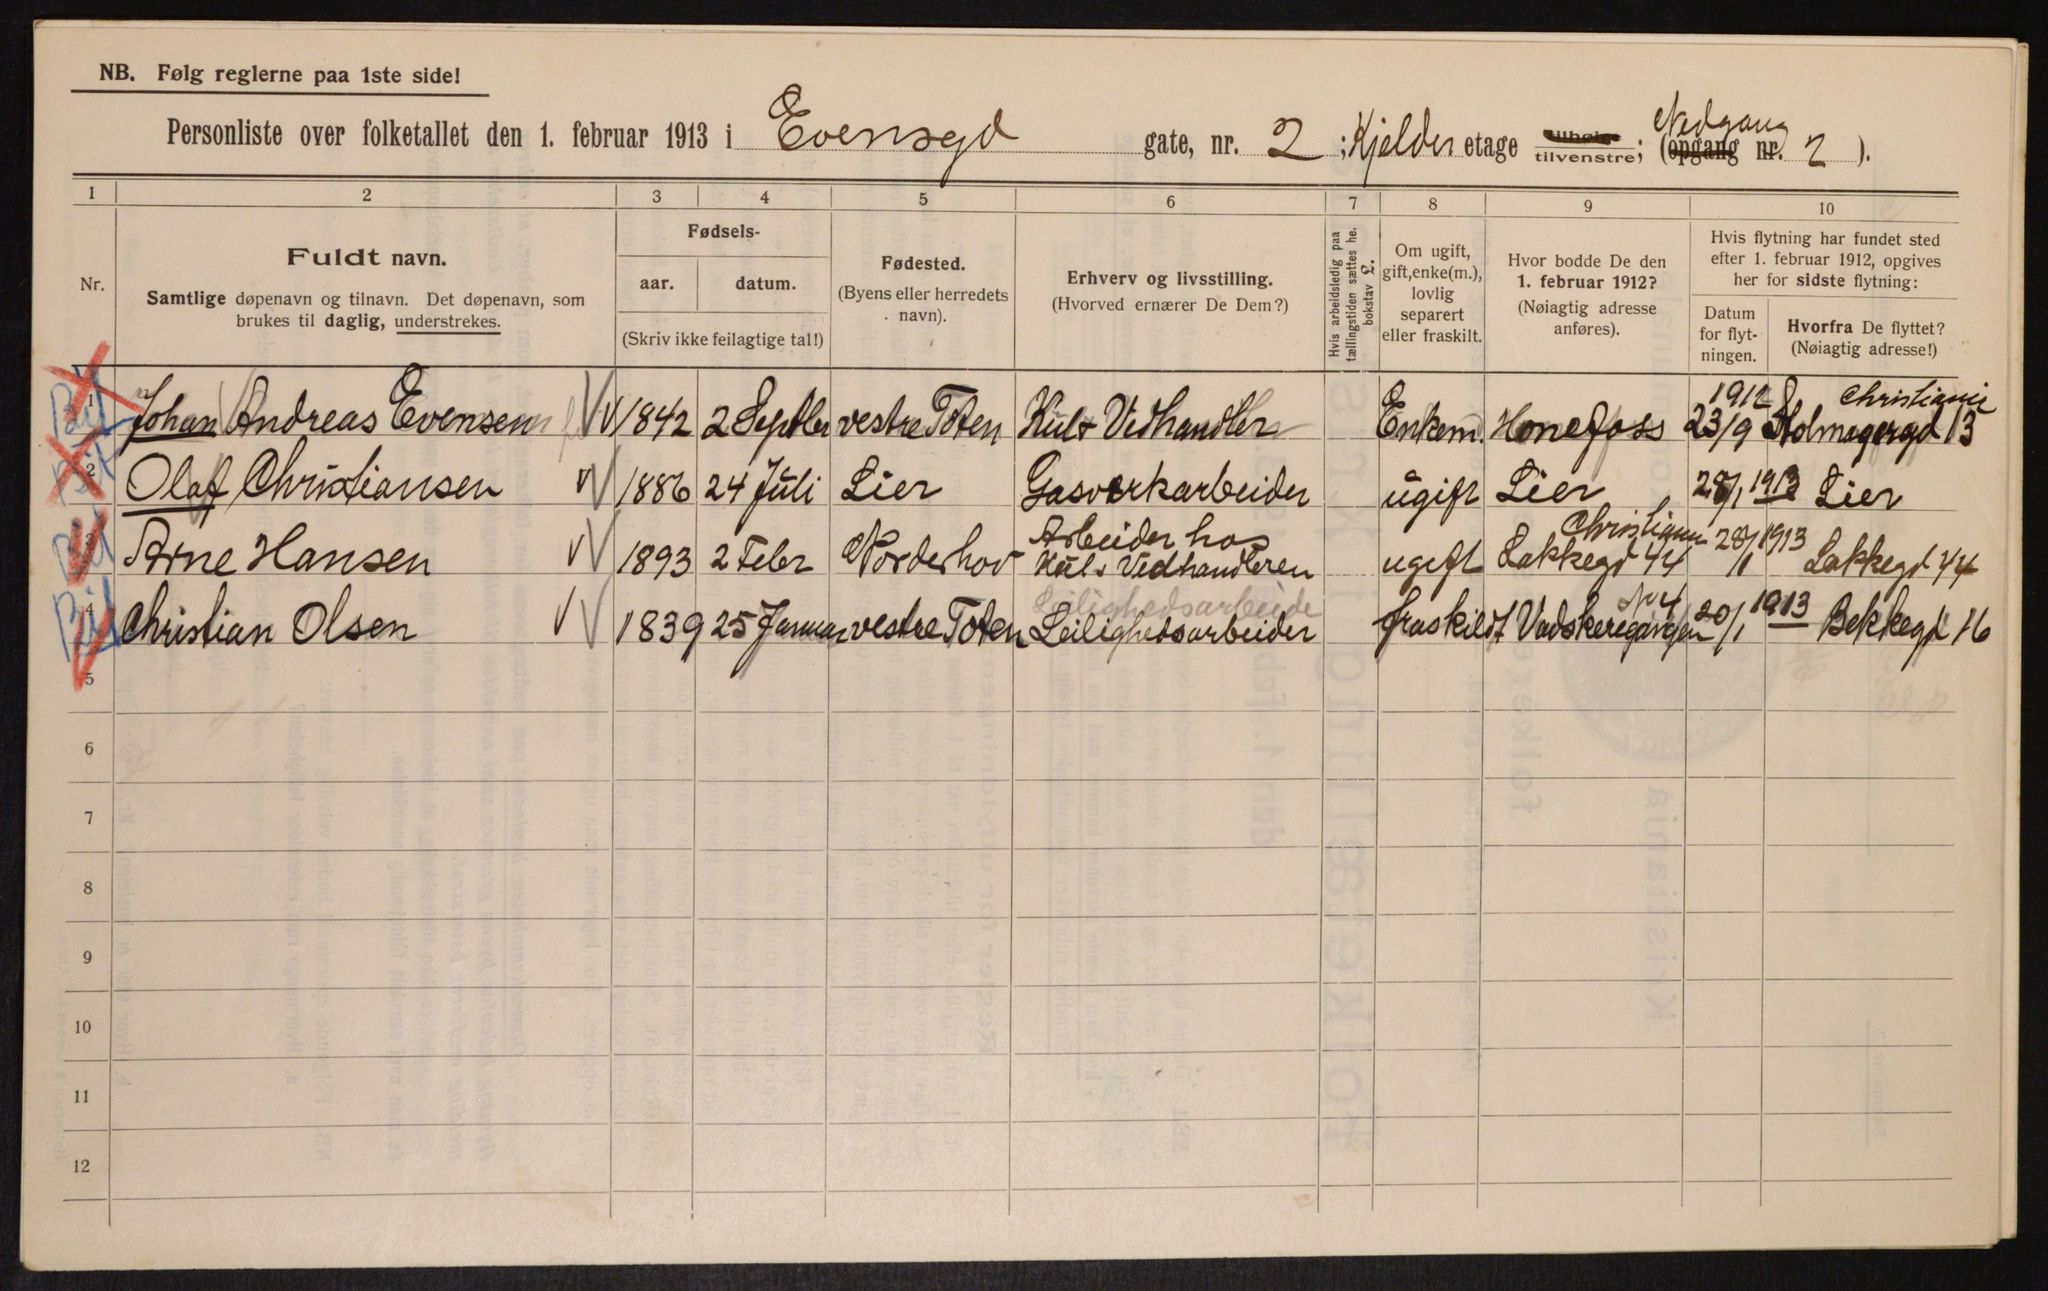 NB. Følg reglerne paa 1ste side!
Personliste over folketallet den 1. februar 1913 i Evensgd gate, nr. 2 ; Kjelder etage tilhøire tilvenstre; (opgang Nedgang nr. 2 ).
1 2 3 4 5 6 7 8 9 10
Nr.
Fuldt navn.
Samtlige døpenavn og tilnavn. Det døpenavn, som
brukes til daglig, understrekes.
Fødsels-
aar. datum.
(Skriv ikke feilagtige tal!)
Fødested.
(Byens eller herredets
navn).
Erhverv og livsstilling.
(Hvorved ernærer De Dem?)
Hvis arbeidsledig paa
tællingstiden sættes he.
bokstav L.
Om ugift,
gift, enke(m.),
lovlig
separert
eller fraskilt.
Hvor bodde De den
1. februar 1912?
(Nøiagtig adresse
anføres).
Hvis flytning har fundet sted
efter 1. februar 1912, opgives
her for sidste flytning:
Datum
for flyt-
ningen.
Hvorfra De flyttet?
(Nøiagtig adresse!)
1 Johan Andreas Evensen 1842 2 Septber vestre Toten Kul & Vedhandler Enkem. Honefoss 1912 23/9 Christiania Holmagergd 13
2 Olaf Christiansen 1886 24 Juli Lier Gasverkarbeider ugift Lier 28/1 1913 Lier
3 Arne Hansen 1893 2 Febr Norderhov Arbeider hos Kul & Vedhandleren ugift Christiania Lakkegd 44 28/1 1913 Lakkegd 44
Leilighedsarbeide
4 Christian Olsen 1839 25 Januar vestre Toten Leilighedsarbeider fraskildt Vadskeregangen No 4 20/1 1913 Bekkegd 16
5
6
7
8
9
10
11
12